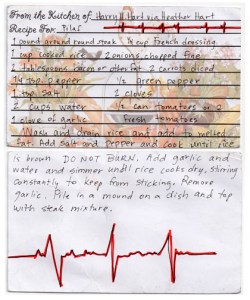 From the Kitchen of Harry H Hart via Heather Hart
Recipe For: Pilaf
1 pound ground round steak ¼ cup French dressing
1 cup cooked rice 2 onions, chopped fine
2 tablespoons bacon or other fat 2 carrots diced
1/4 tsp Pepper 1/2 Green pepper
1 tsp salt 2 cloves
2 cups water 1/2 can tomatoes or 2
1 clove of garlic fresh tomatoes
Wash and drain rice and add to melted
fat. Add salt and Pepper and cook until rice
is brown. DO NOT BURN. Add garlic and
water and simmer until rice cooks dry, stirring
constantly to keep from sticking. Remove
garlic. Pile in a mound on a dish and top
with steak mixture.